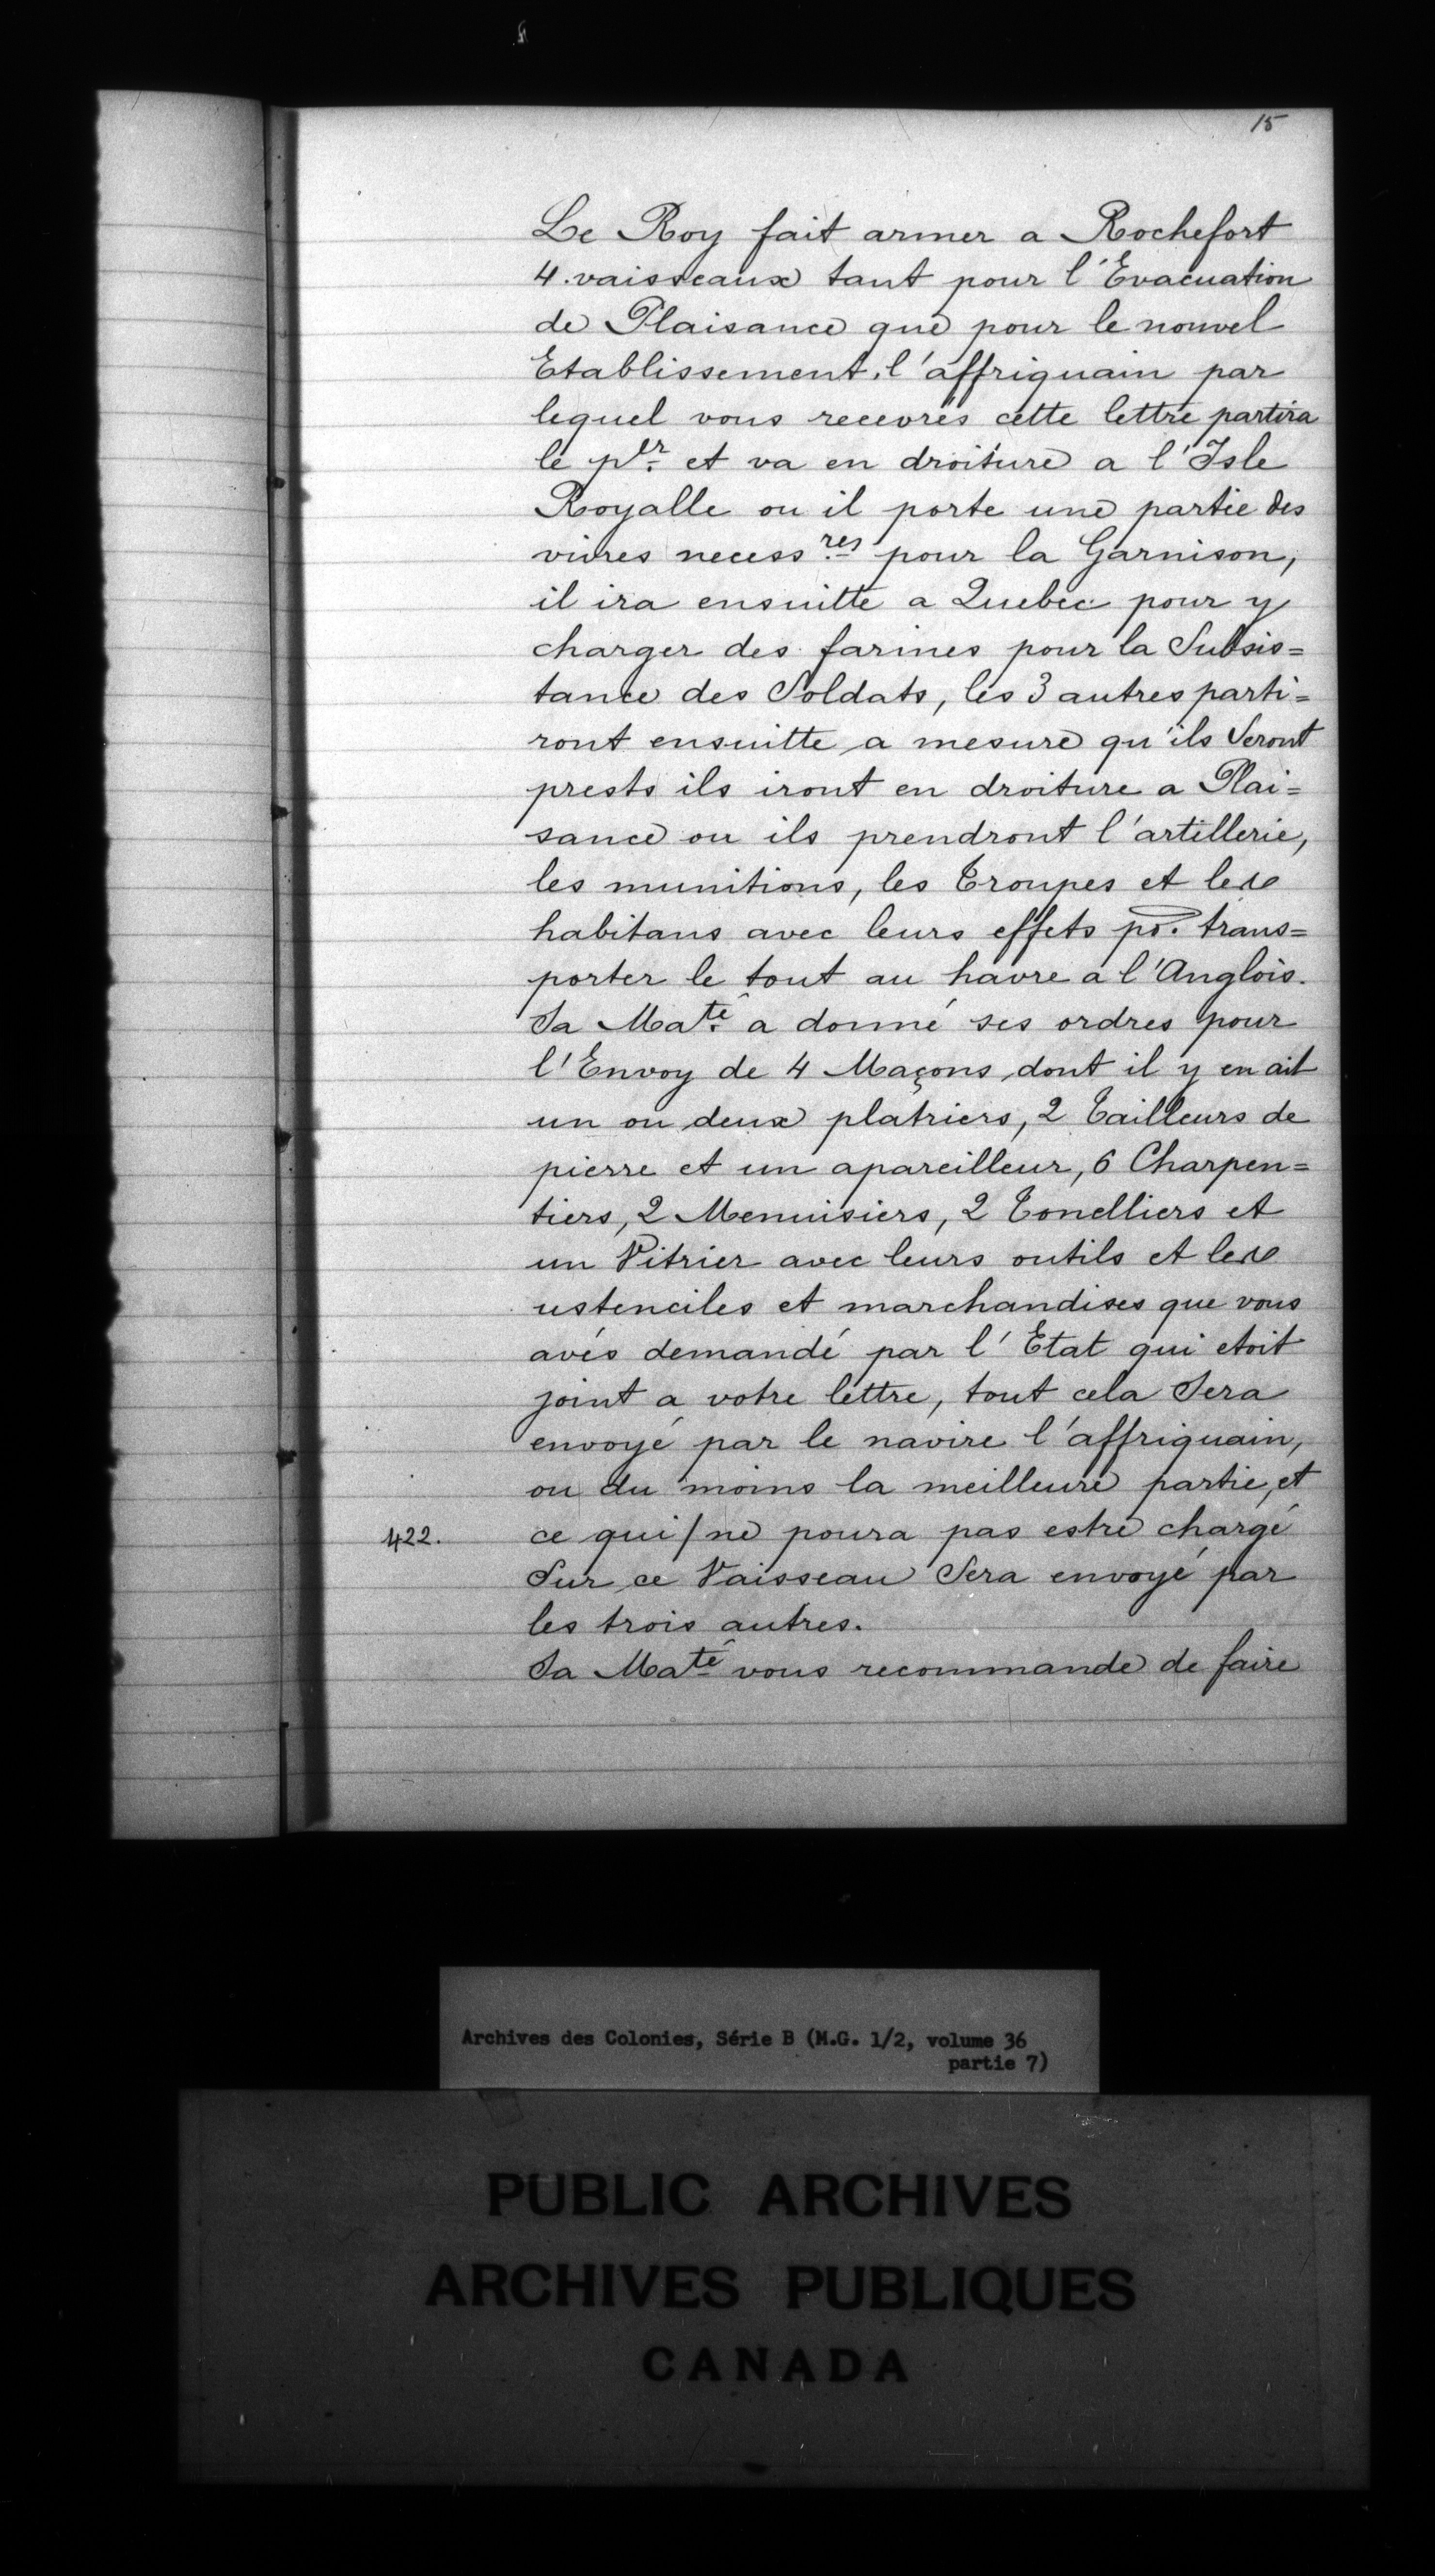 15
Le Roy fait armer a Rochefort
4. vaisseaux tant pour l'Evacuation
de Plaisance que pour le nouvel
Etablissement, l'affriquain par
lequel vous recevrés cette lettre partira
le p.er et va en droiture a l'Isle
Royalle ou il porte une partie des
vivres necess.res pour la Garnison,
il ira ensuitte a Quebec pour y
charger des farines pour la Subsis=
tance des Soldats, les 3 autres parti=
ront ensuitte a mesure qu'ils Seront
prests ils iront en droiture a Plai=
sance ou ils prendront l'artillerie,
les munitions, les Troupes et les
habitans avec leurs effets po. trans=
porter le tout au havre a l'Anglois.
Sa Ma.té a donné ses ordres pour
l'Envoy de 4 Maçons, dont il y en ait
un ou deux platriers, 2 Tailleurs de
pierre et un apareilleur, 6 Charpen=
tiers, 2 Menuisiers, 2 Tonelliers et
un Vitrier avec leurs outils et les
ustenciles et marchandises que vous
avés demandé par l'Etat qui etoit
joint a votre lettre, tout cela Sera
envoyé par le navire l'affriquain,
ou du moins la meilleure partie, et
422. ce qui/ne poura pas estre chargé
Sur ce Vaisseau Sera envoyé par
les trois autres.
Sa Maté vous recommande de faire
Archives des Colonies, Série B (M.G. 1/2, volume 36
partie 7)
PUBLIC ARCHIVES
ARCHIVES PUBLIQUES
CANADA